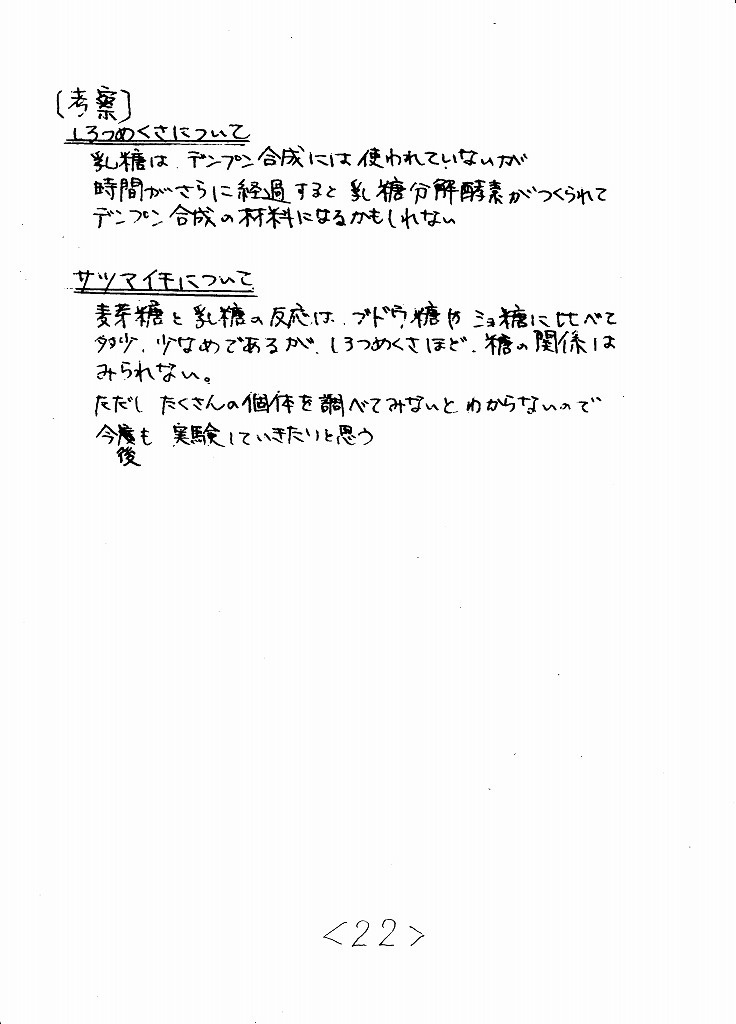 〔考察〕
しろつめくさについて
乳糖は、デンプン合成には使われていないが
時間がさらに経過すると乳糖分解酵素がつくられて
デンプン合成の材料になるかもしれない
サツマイモについて
麦芽糖と乳糖の反応は、ブドウ糖やショ糖に比べて
多少、少なめであるが、しろつめくさほど、糖の関係は
みられない。
ただし たくさんの個体を調べてみないとわからないので
今度も 実験していきたいと思う
後
<22>